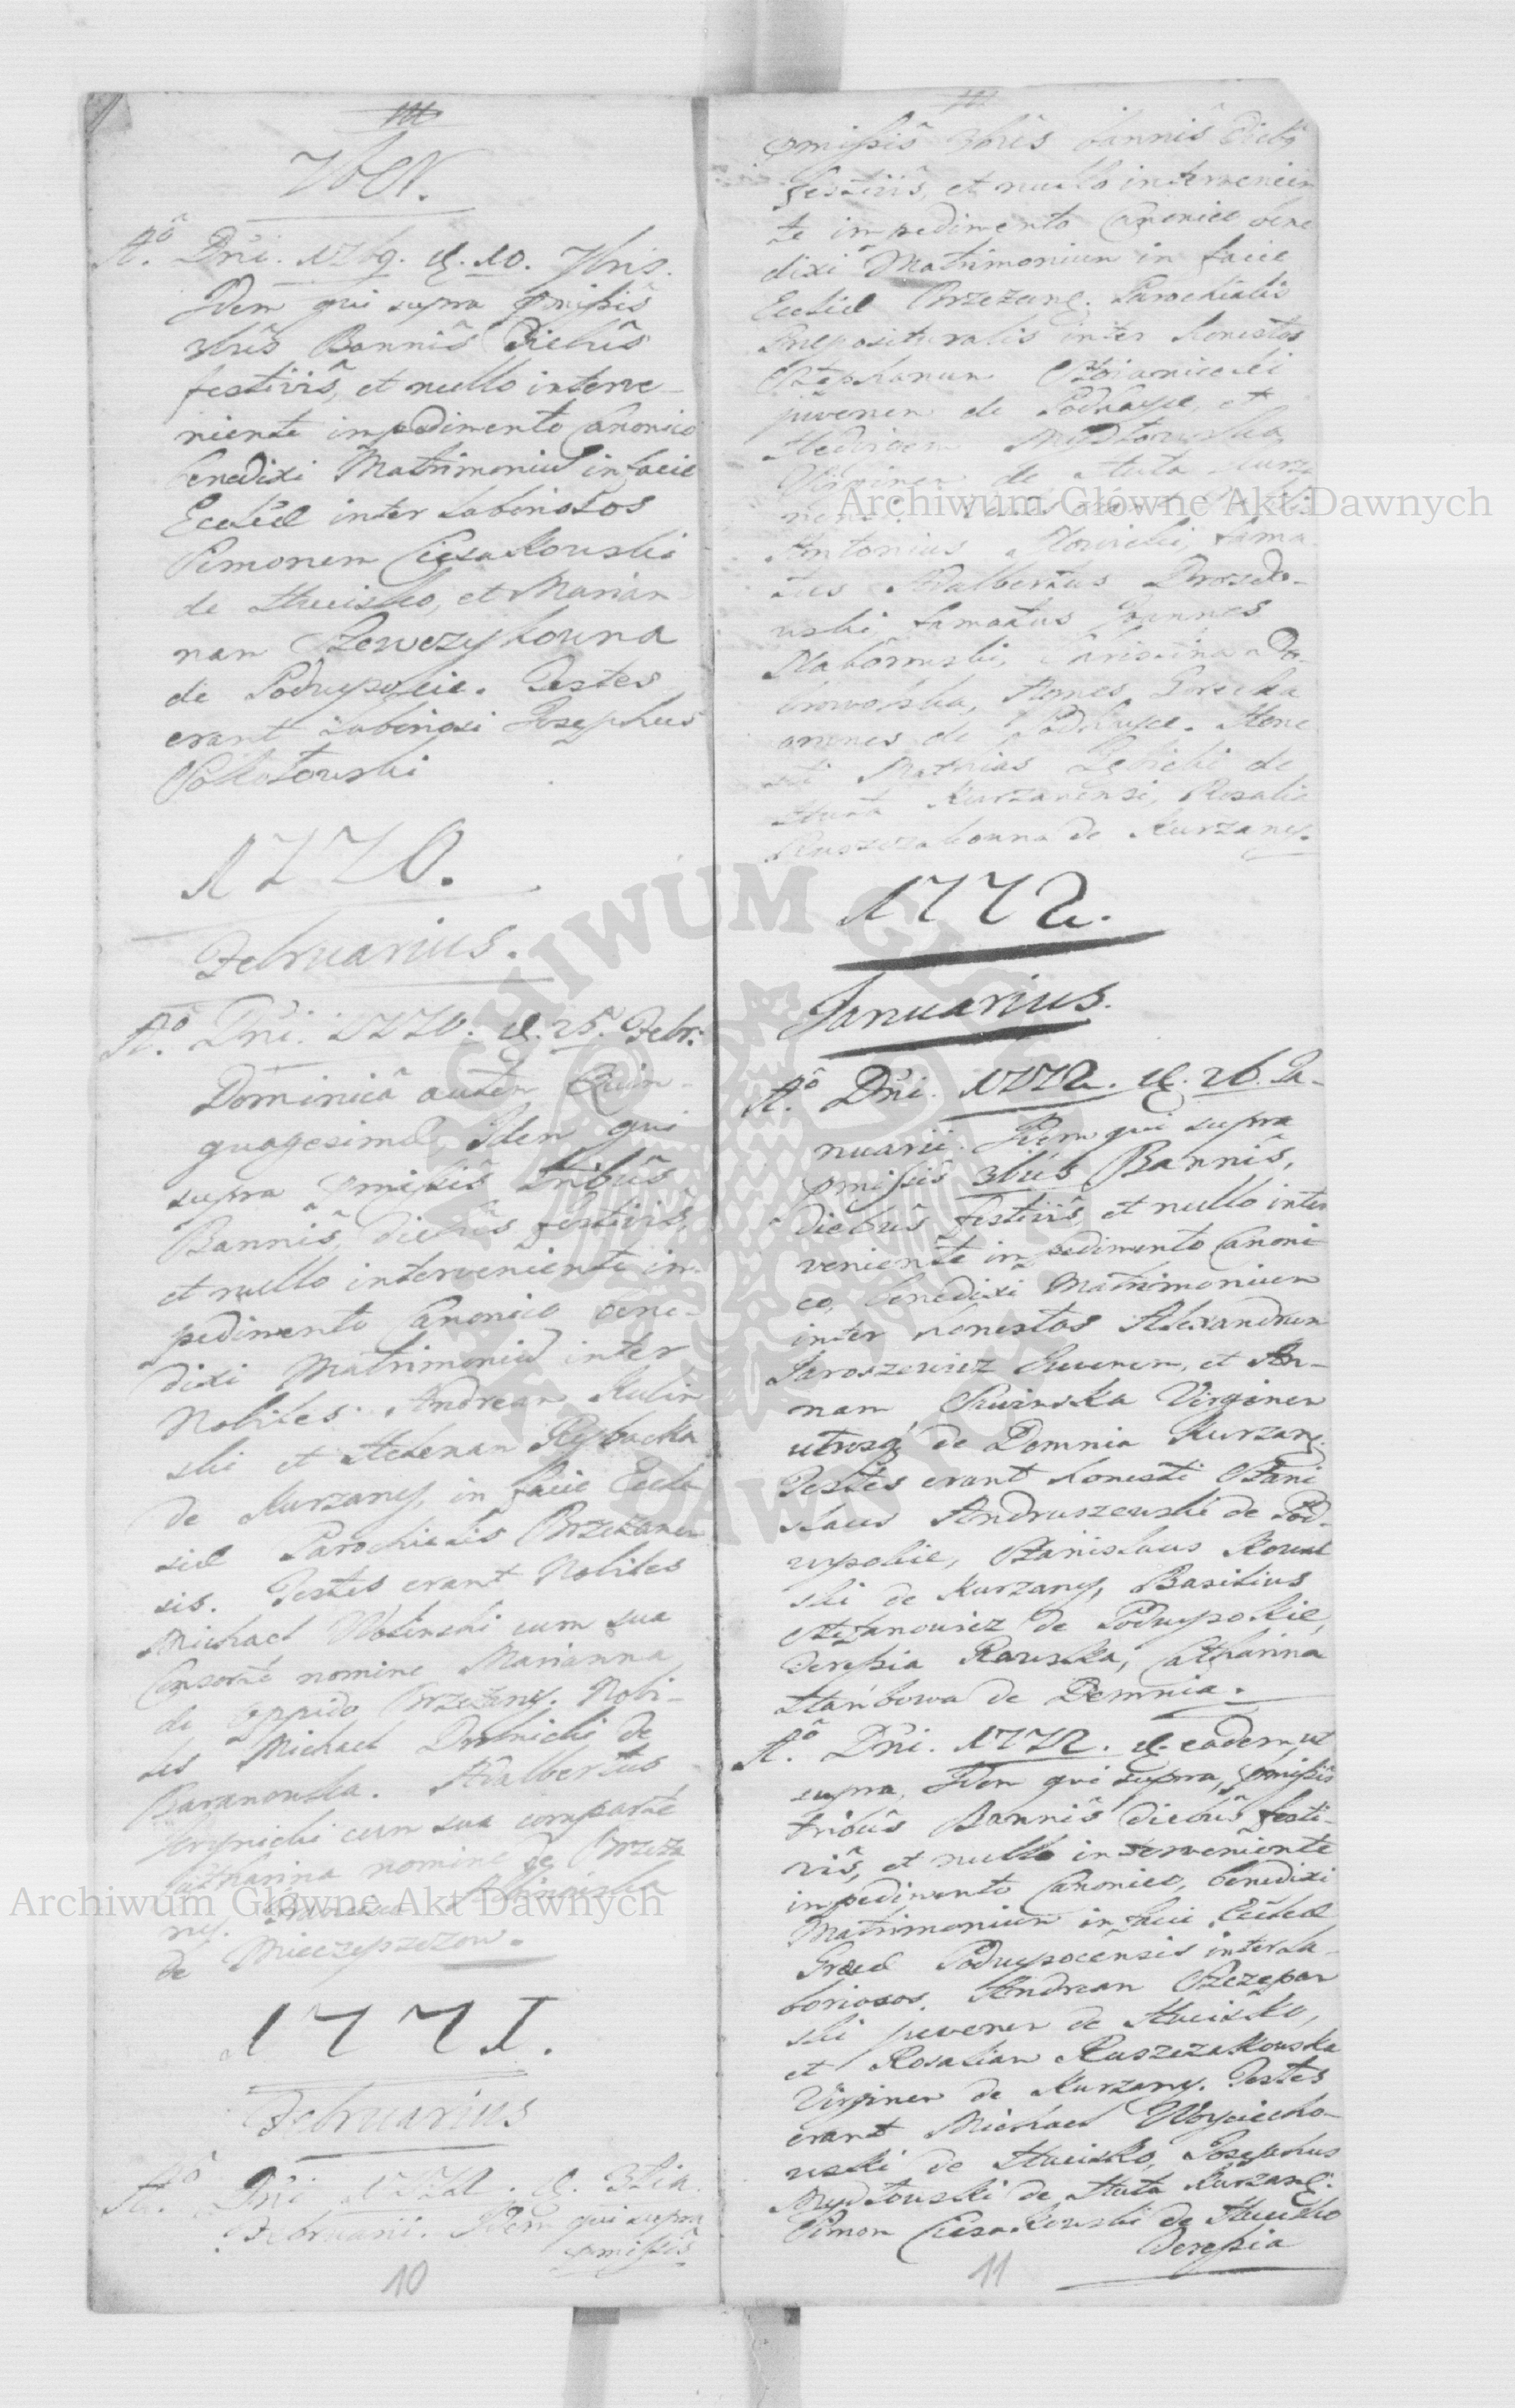 A.º Dñi. 1769. d. 10. 7bris.
Idem qui supra pmissis
3bus Bannis Diebus
festivis, et nullo interve-
niente impedimento Canonico
benedixi Matrimoniu in facie
Eccliæ inter Laboriosos
Simonem Ciesakowski
de Hucisko, et Marian-
nam Szewczykowna
de Podwysokie. Testes
erant Laboriosi Josephus
1770.
Februarius.
A.º Dñi. 1770. d. 25. Febr:
Dominicâ autem Quin-
quagesimæ, Idem qui
supra pmissis tribus
Bannis, diebus festivis,
et nullo interveniente im-
pedimento Canonico bene-
dixi Matrimoniu inter
Nobiles Andream Kulin
ski et Helenam Rybacka
de Kurzany, in facie Eccle
siæ Parochialis Brzezanen
sis. Testes erant Nobiles
Michael Wolinski cum sua
Consorte nomine Marianna
de Oppido Brzezany. Nobi-
lis Michael de
Baranowka. Adalbertus
cum sua comparte
Catharina nomine de Brzeza
ny.
de Mieczyszczow.
1771.
Februarius
A.º Dñi 1771. d. 3tia
Februarii. Idem qui supra
pmissis
10
pmissis 3bus bannis diebus
festivis, et nullo intervenien
te impedimento Canonico bene
dixi Matrimonium in facie
Eccliæ Brzezan. Parochialis
Præpositura­lis inter Honestos
Stephanum
juvenem de Podwyso, et
Hedvigem Mydłowska
Virginem de Huta Kurza
nensi.
Antonius Nowicki, Fama
tus Adalbertus Drozdo-
wski, Famatus Joannes
Christina Do-
browolska, Agnes Gorecka
omnes de Podwyso. Hone
sti Mathias de
Huta Kurzanensi, Rosalia
Ruszczakowna de Kurzany.
1772.
Januarius.
A.º Dñi. 1772. d. 26. Ja-
nuarii. Idem qui supra
pmissis 3bus Bannis,
diebus festivis, et nullo inter
veniente impedimento Canoni
co, benedixi Matrimonium
inter honestos Alexandrum
Jaroszewicz Juvenem, et An-
nam Virginem
utrosq de Demnia Kurzany.
Testes erant honesti Stani
slaus Andruszewski de Pod-
wysokie, Stanislaus Kowal
ski de Kurzany, Basilius
Stefanowicz de Podwysokie,
Teressia Rawska, Catharina
de Demnia.
A.º Dñi. 1772. d. eadem, ut
supra, Idem qui supra, pmissis
tribus Bannis diebus festi-
vis, et nullo interveniente
impedimento Canonico, benedixi
Matrimonium in facie Eccliæ
Græcæ Podwysocensis inter La-
boriosos. Andream Szczepan
ski juvenem de Hucisko,
et Rosaliam Ruszczakowska
Virginem de Kurzany. Testes
erant Michael Woyciecho-
wski de Hucisko, Josephus
Mydłowski de Huta Kurzane.
Simon Ciesakowski de Hucisko
Teressia
11
Archiwum Główne Akt Dawnych
Archiwum Główne Akt Dawnych
ARCHIWUM GŁÓWNE AKT DAWNYCH